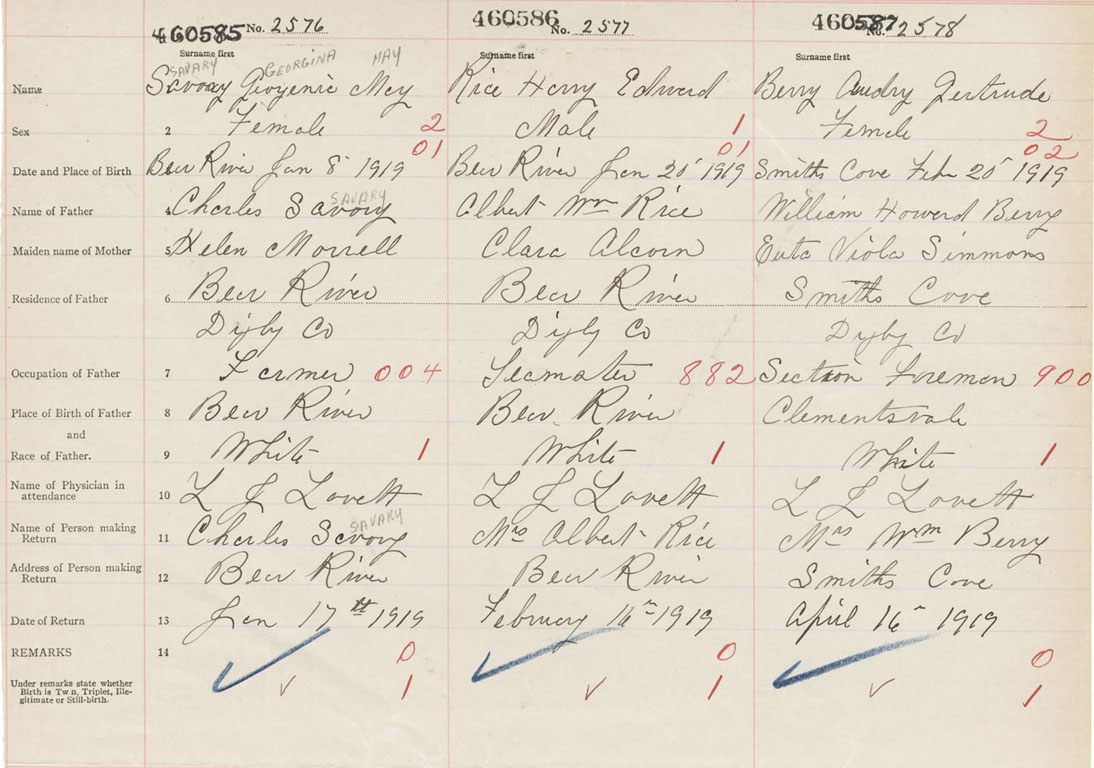 460585 No. 2576 460586 No. 2577 460587 No. 2578
Surname first Surname first Surname first
SAVARY GEORGINA MAY
Name Savory Georgenie May Rice Harry Edward Berry Audry Gertrude
Sex 2 Female 2 Male 1 Female 2
01 01 02
Date and Place of Birth Bear River Jan 8 1919 Bear River Jan 20 1919 Smiths Cove Feb 20 1919
SAVARY
Name of Father 4 Charles Savory Albert Wm Rice William Howard Berry
Maiden name of Mother 5 Helen Morrell Clara Alcorn Viola Simmons
Residence of Father 6 Bear River Bear River Smiths Cove
Digby Co Digby Co Digby Co
Occupation of Father 7 Farmer 004 Teamster 882 Section Foreman 900
Place of Birth of Father 8 Bear River Bear River Clementsvale
and
Race of Father. 9 White 1 White 1 White 1
Name of Physician in
attendance 10 L J Lovett L J Lovett L J Lovett
SAVARY
Name of Person making
Return 11 Charles Savory Mrs Albert Rice Mrs Wm Berry
Address of Person making
Return 12 Bear River Bear River Smiths Cove
Date of Return 13 Jan 17th 1919 February 16 1919 April 16 1919
REMARKS 14 0 0 0
Under remarks state whether
Birth is Twin, Triplet, Ille-
gitimate or Still-birth. 1 1 1